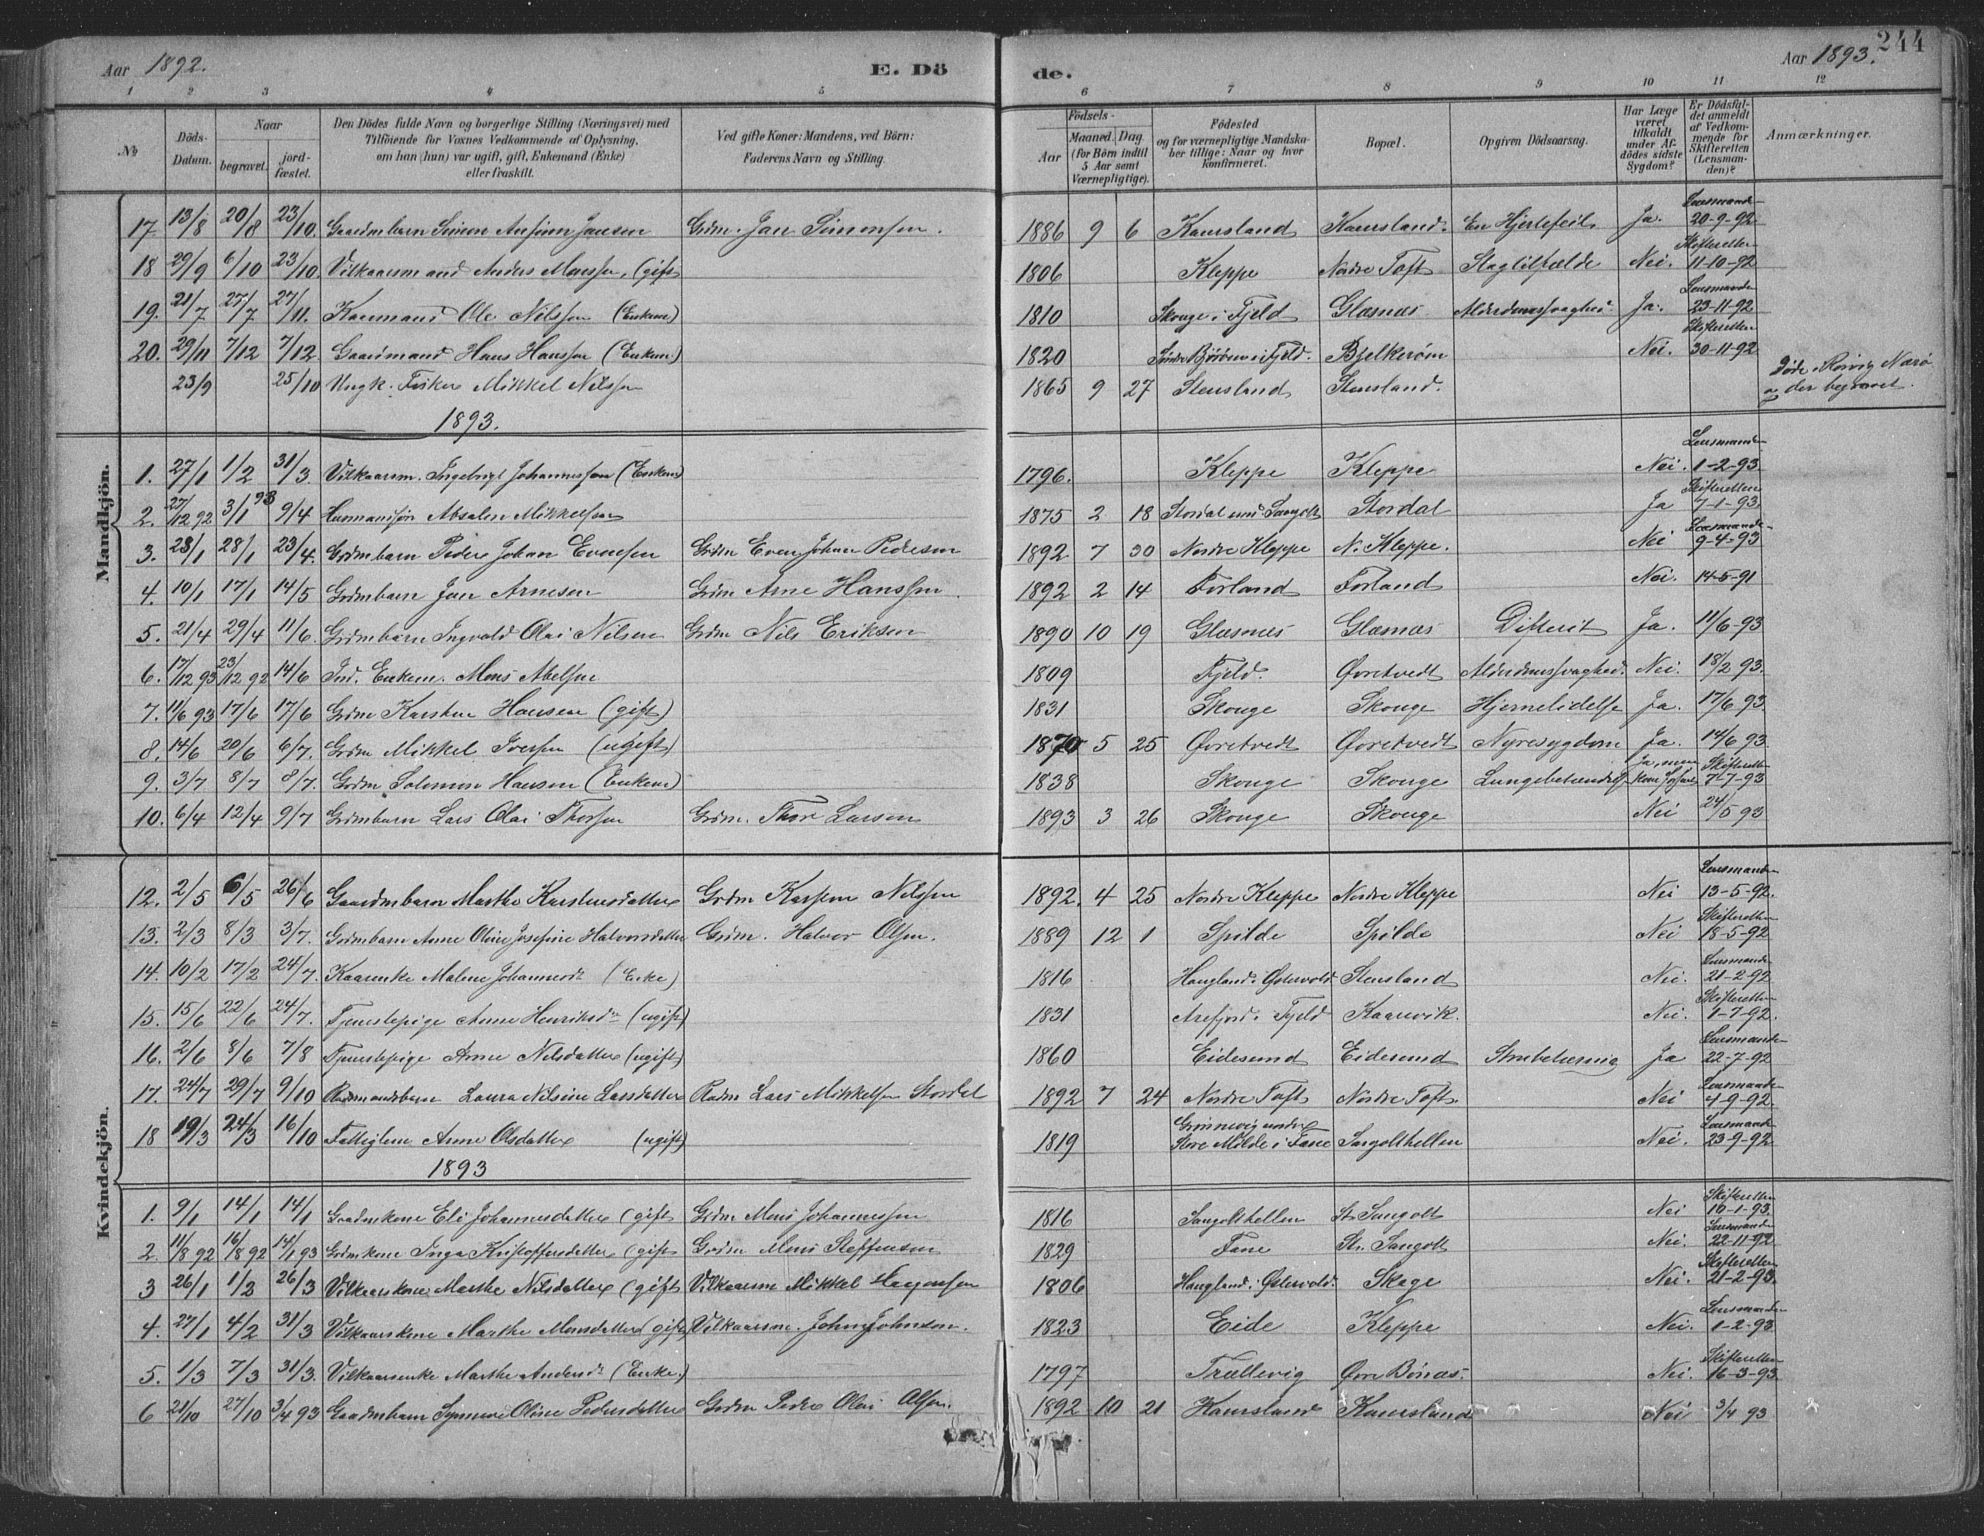 Aar 1892. E. Dö de. Aar 1893. 244
1 2 3 4 5 6 7 8 9 10 11 12
No Döds-Datum. Naar begravet. jordfæstet. Den Dödes fulde Navn og borgerlige Stilling (Næringsvei) med Tilföiende for Voxnes Vedkommende af Oplysning, om han (hun) var ugift, gift, Enkemand (Enke) eller fraskilt. Ved gifte Koner: Mandens, ved Börn: Faderens Navn og Stilling. Födsels- Aar Maaned. Dag. (for Börn indtil 5 Aar samt Værnepligtige). Födested og for værnepligtige Mandskaber tillige: Naar og hvor konfirmeret. Bopæl. Opgiven Dödsaarsag. Har Læge været tilkaldt under Afdödes sidste Sygdom? Er Dödsfaldet anmeldt af Vedkommende for Skifteretten (Lensmanden)? Anmærkninger.
Mandkjön.
17 13/8 20/8 23/10. Gaardmbarn Simon Jansen Grdm. Jan Simonsen. 1886 9 6 Kaursland Kaursland. En Hjertefeil Ja. Lensmanden 20-9-92
18 29/9 6/10 23/10. Vilkaarsmand Anders Monsen, (gift 1806 Kleppe Nordre Toft Slagtilfælde Nei. Skifteretten 11-10-92
19. 21/7 27/7 27/11. Kaarmand Ole Nilssen (Enkem) 1810 Skouge i Fjeld Glæsnæs Alderdomssvaghed. Ja. Lensmanden 23-11-92
20. 29/11 7/12 7/12. Gaardmand Hans Hanssen (Enkem.) 1820 i Fjeld. Bjelkerøen Nei. Skifteretten 30-11-92
23/9 25/10 Ungk. Fisker Mikkel Nilssen 1865 9 27 Stensland Stensland. Døde i Rørvig Nærø og der begravet.
1893.
1. 27/1 1/2 31/3. Vilkaarsm. Ingebrigt Johannessen (Enkem) 1796. Kleppe Kleppe Nei. Lensmanden 1-2-93
2. 27/12 92 3/1 93 9/4 Husmandssøn Absalon Mikkelsen 1875 2 18 Stordal und. Sangolt Stordal Ja Skifteretten 7-1-93
3. 23/1 28/1 23/4. Grdmbarn Peder Johan Evensen Grdm Even Johan Pedersen 1892 7 30 Nordre Kleppe N. Kleppe. Nei Lensmanden 9-4-93
4. 10/1 17/1 14/5 Grdmbarn Jan Arnesen Grdm Arne Hanssen. 1892 2 14 Forland Forland Nei. 14-5-91
5. 21/4 29/4 11/6. Grdmbarn Ingvald Olai Nilsen Grdm Nils Eriksen 1890 10 19 Glæsnæs Glæsnæs Difterit Ja. 11/6-93
6. 17/12 93 23/12 92 14/6 Ind. Enkem. Mons Abelsen 1809 Fjeld. Øvretvedt Alderdomssvaghed. Nei. 18/2 93.
7. 11/6 93 17/6 17/6 Grdm Karsten Hansen (gift) 1831 Skouge Skouge Hjernelidelse Ja. 17/6 93
8. 14/6 20/6 6/7. Grdm Mikkel Iversen (ugift) 1870 5 25 Øvretvedt Øvretvedt Nyresygdom Ja. 14/6 93
9. 3/7 8/7 8/7. Grdm Salomon Hansen (Enkem) 1838 Skouge Skouge Lungebetændelse Ja, men kom Skifteretten 7-7-93
10. 6/4 12/4 9/7 Grdmbarn Lars Olai Thorsen Grdm. Thor Larsen 1893 3 26 Skouge Skouge Nei 24/5 93
Kvindekjön.
12. 2/5 6/5 26/6 Gaardmbarn Marthe Karstensdatter Grdm Karsten Nilssen 1892. 4 25 Nordre Kleppe Nordre Kleppe Nei Lensmanden 13-5-92.
13. 2/3 8/3 3/7. Grdmbarn Anne Oline Josefine Halvorsdatter Grdm. Halvor Olsen. 1889 12 1 Spilde Spilde Nei Skifteretten 18-5-92
14. 10/2 17/2 24/7 Kaarenke Malene Johannesdr (Enke) 1816 Haugland i Østervold Stensland Nei. Lensmanden 21-2-92
15. 15/6 22/6 24/7. Tjenestepige Anne Henriksdr (ugift) 1831 Arefjord i Fjeld Kaarevik. Nei. Skifteretten 1-7-92.
16. 2/6 8/6 7/8 Tjenestepige Anne Nilsdatter (ugift) 1860 Eidesund Eidesund Strubetæring Ja Lensmanden 22-7-92
17. 24/7 29/7 9/10 Rødmandsbarn Laura Nilsine Larsdatter Rødm Lars Mikkelsen Stordal 1892 7 24 Nordre Toft Nordre Toft. Nei Lensmanden 4-9-92.
18 19/3 24/3 16/10 Fattiglem Anne Olsdatter (ugift) 1819 Grønnevig under Store Milde i Fane Sangolthellen Nei. Lensmanden 23-9-92
1893
1. 9/1 14/1 14/1 Gaardmkone Eli Johannesdatter (gift Grdm Mons Johannessen 1816 Sangolthellen St. Sangolt Nei Skifteretten 10-1-93.
2. 11/8 92 16/8 92 14/1 93 Grdmkone Inga Kristoffersdatter (gift Grdm Mons Steffensen 1829 Fane St. Sangolt Nei. Lensmanden 22-11-92
3 26/1 1/2 26/3 Vilkaarskone Marthe Nilsdatter (gift Vilkaarsm Mikkel Haagensen 1806 Haugland i Østervold. Skage Nei. Skifteretten 21-2-93.
4. 27/1 4/2 31/3 Vilkaarskone Marthe Monsdatter (gift Vilkaarsm. John Johnson. 1823 Eide Kleppe Nei. Lensmanden 1-2-93
5. 1/3 7/3 31/3. Vilkaarsenke Marthe Andersdr (Enke.) 1797 Trællevig Øvre Bønæs. Nei. Skifteretten 16-3-93
6 21/10 27/10 3/4 93 Gaardmbarn Synneve Oline Pedersdatter Grdm Peder Olai Olsen. 1892 10 21 Kaursland Kaursland Nei 3/4 93